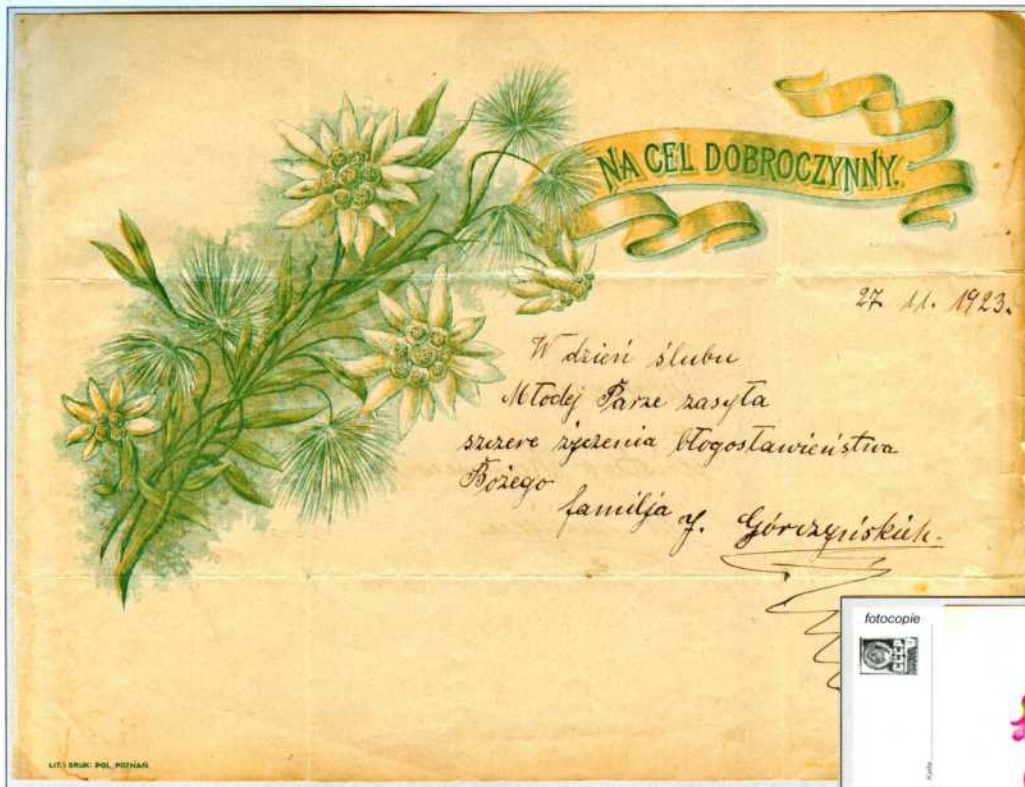 NA CEL DOBROCZYNNY.
27. 11. 1923.
W dzień ślubu
Młodej Parze zasyła
szczere życzenia błogosławieństwa
Bożego
familja J. Górczyńskich.
LIT. I BRUK: POL, POZNAŃ
fotocopie
CCCP